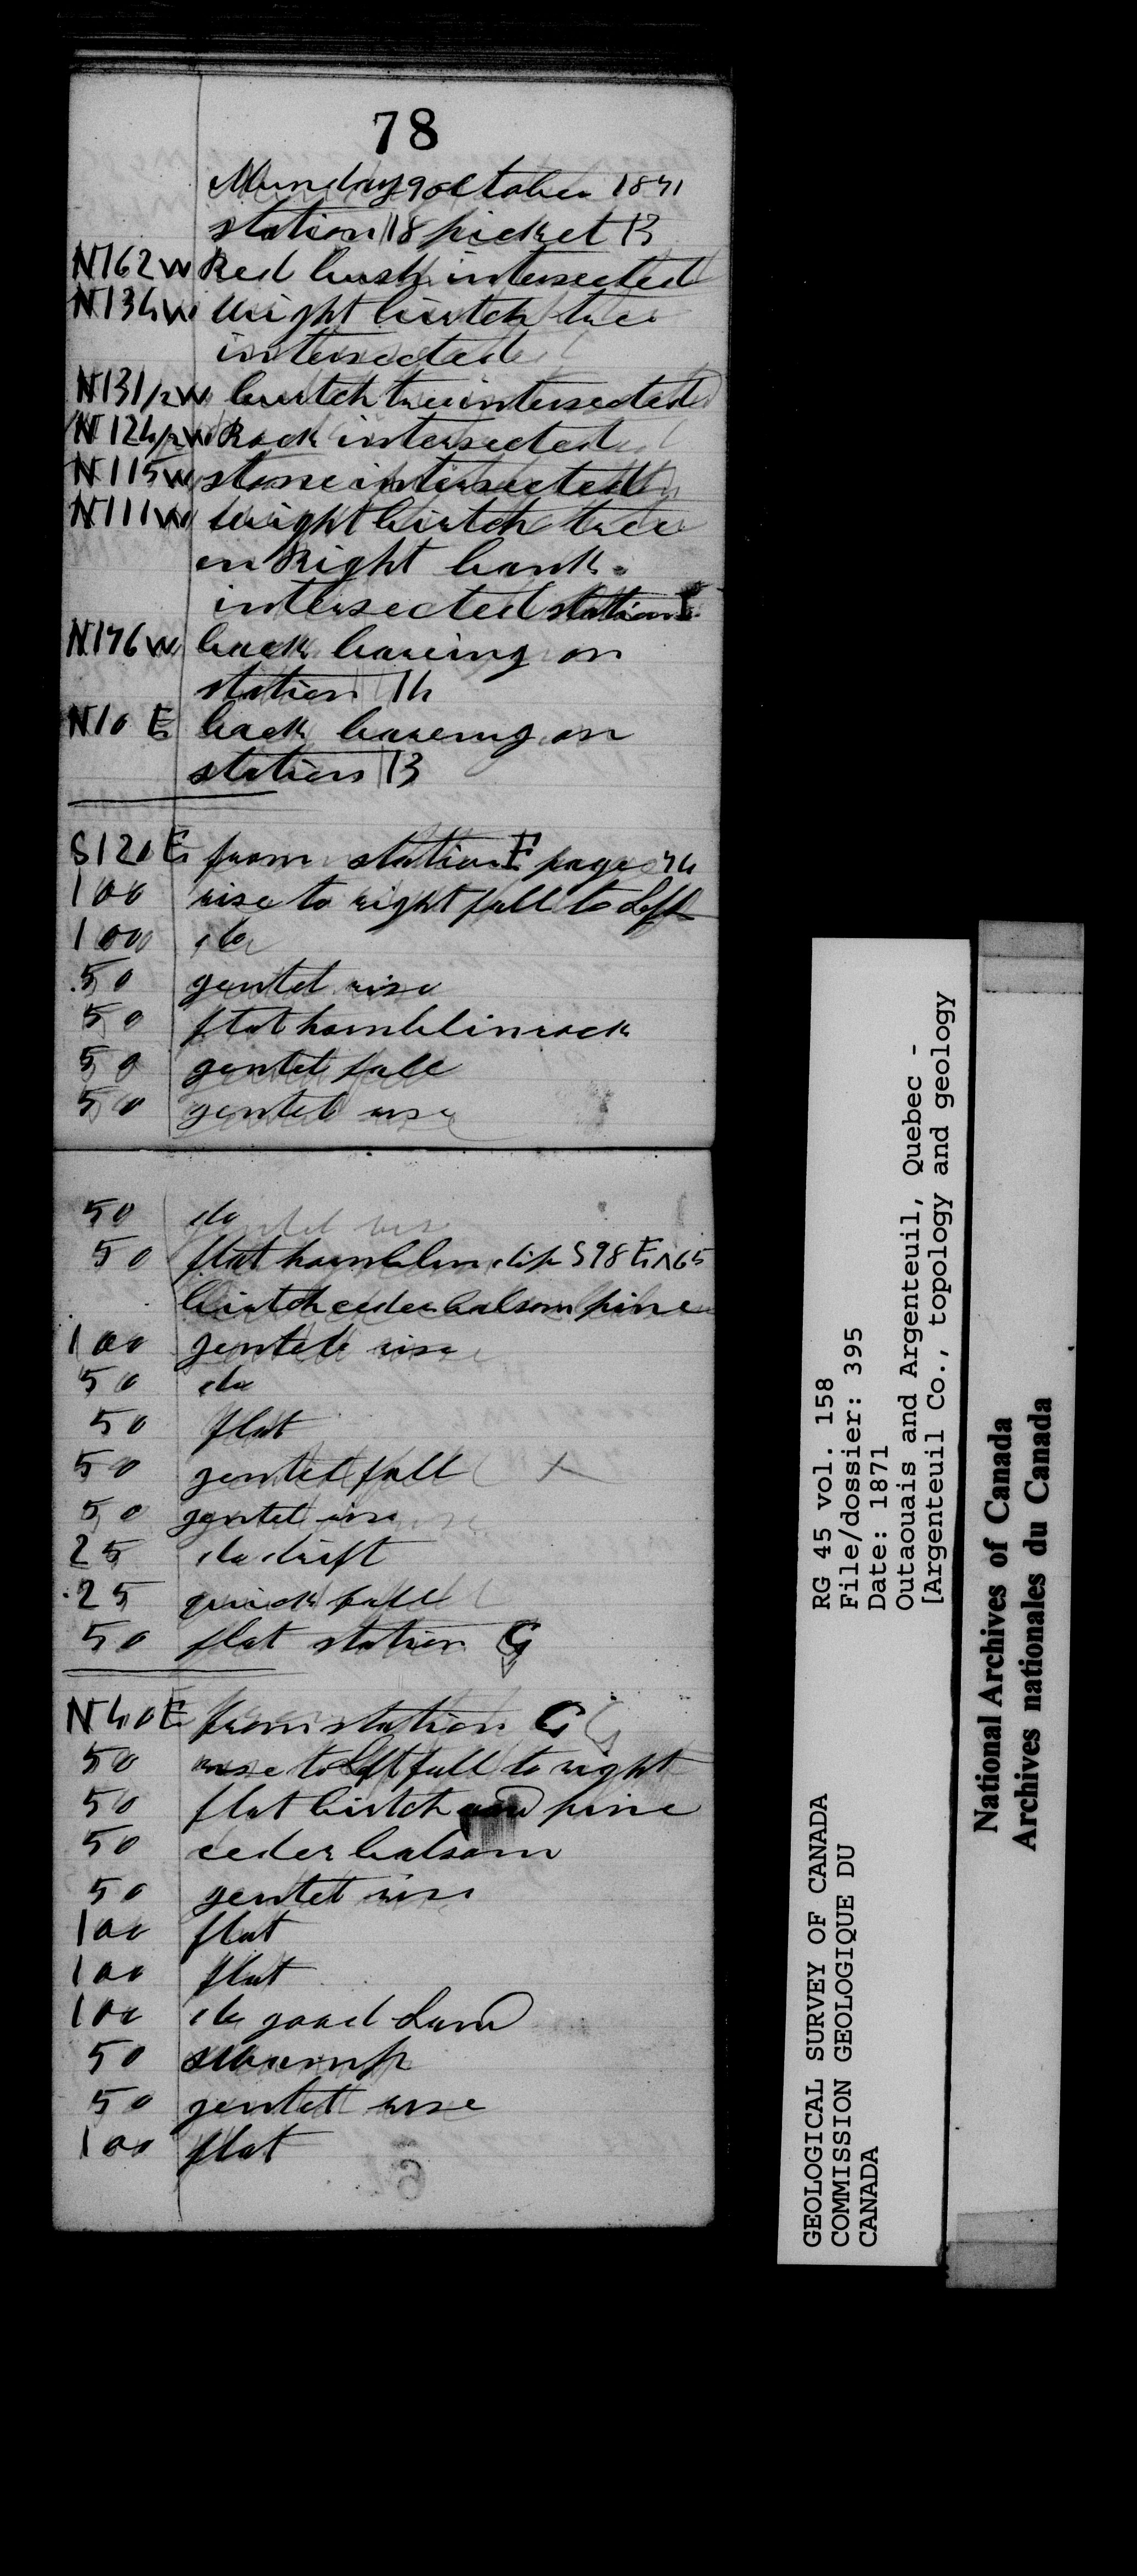 78
Munday 9 October 1871
station 18 picket 13
N162W Red bush intersected
N134W Wight birtch tree
intersected
N131/2W birtch tree intersected
N124/2W Rock intersected
N115W stone intersected
N111W Wight birtch tree
on Right bank
intersected station
N176W back bareing on
station 14
N10E back bareing on
station 13
S120E from station F page 74
100 rise to right fall to Left
100 do
50 gentel rise
50 flat hornblin rock
50 gentel fall
50 gentel rise
50 do
50 flat hornblin dip S98E^65
birtch ceder balsom pine
100 gentel rise
50 do
50 flat
50 gentel fall
50 gentel rise
25 do drift
25 quick fall
50 flat station G
N40E from station G
50 rise to Left fall to right
50 flat birtch and pine
50 ceder balsom
50 gentel rise
100 flat
100 flat
100 do good Land
50 swamp
50 gentel rise
100 flat
RG 45 vol. 158
File/dossier: 395
Date: 1871
Outaouais and Argenteuil, Quebec -
[Argenteuil Co., topology and geology
GEOLOGICAL SURVEY OF CANADA
COMMISSION GEOLOGIQUE DU
CANADA
National Archives of Canada
Archives nationales du Canada